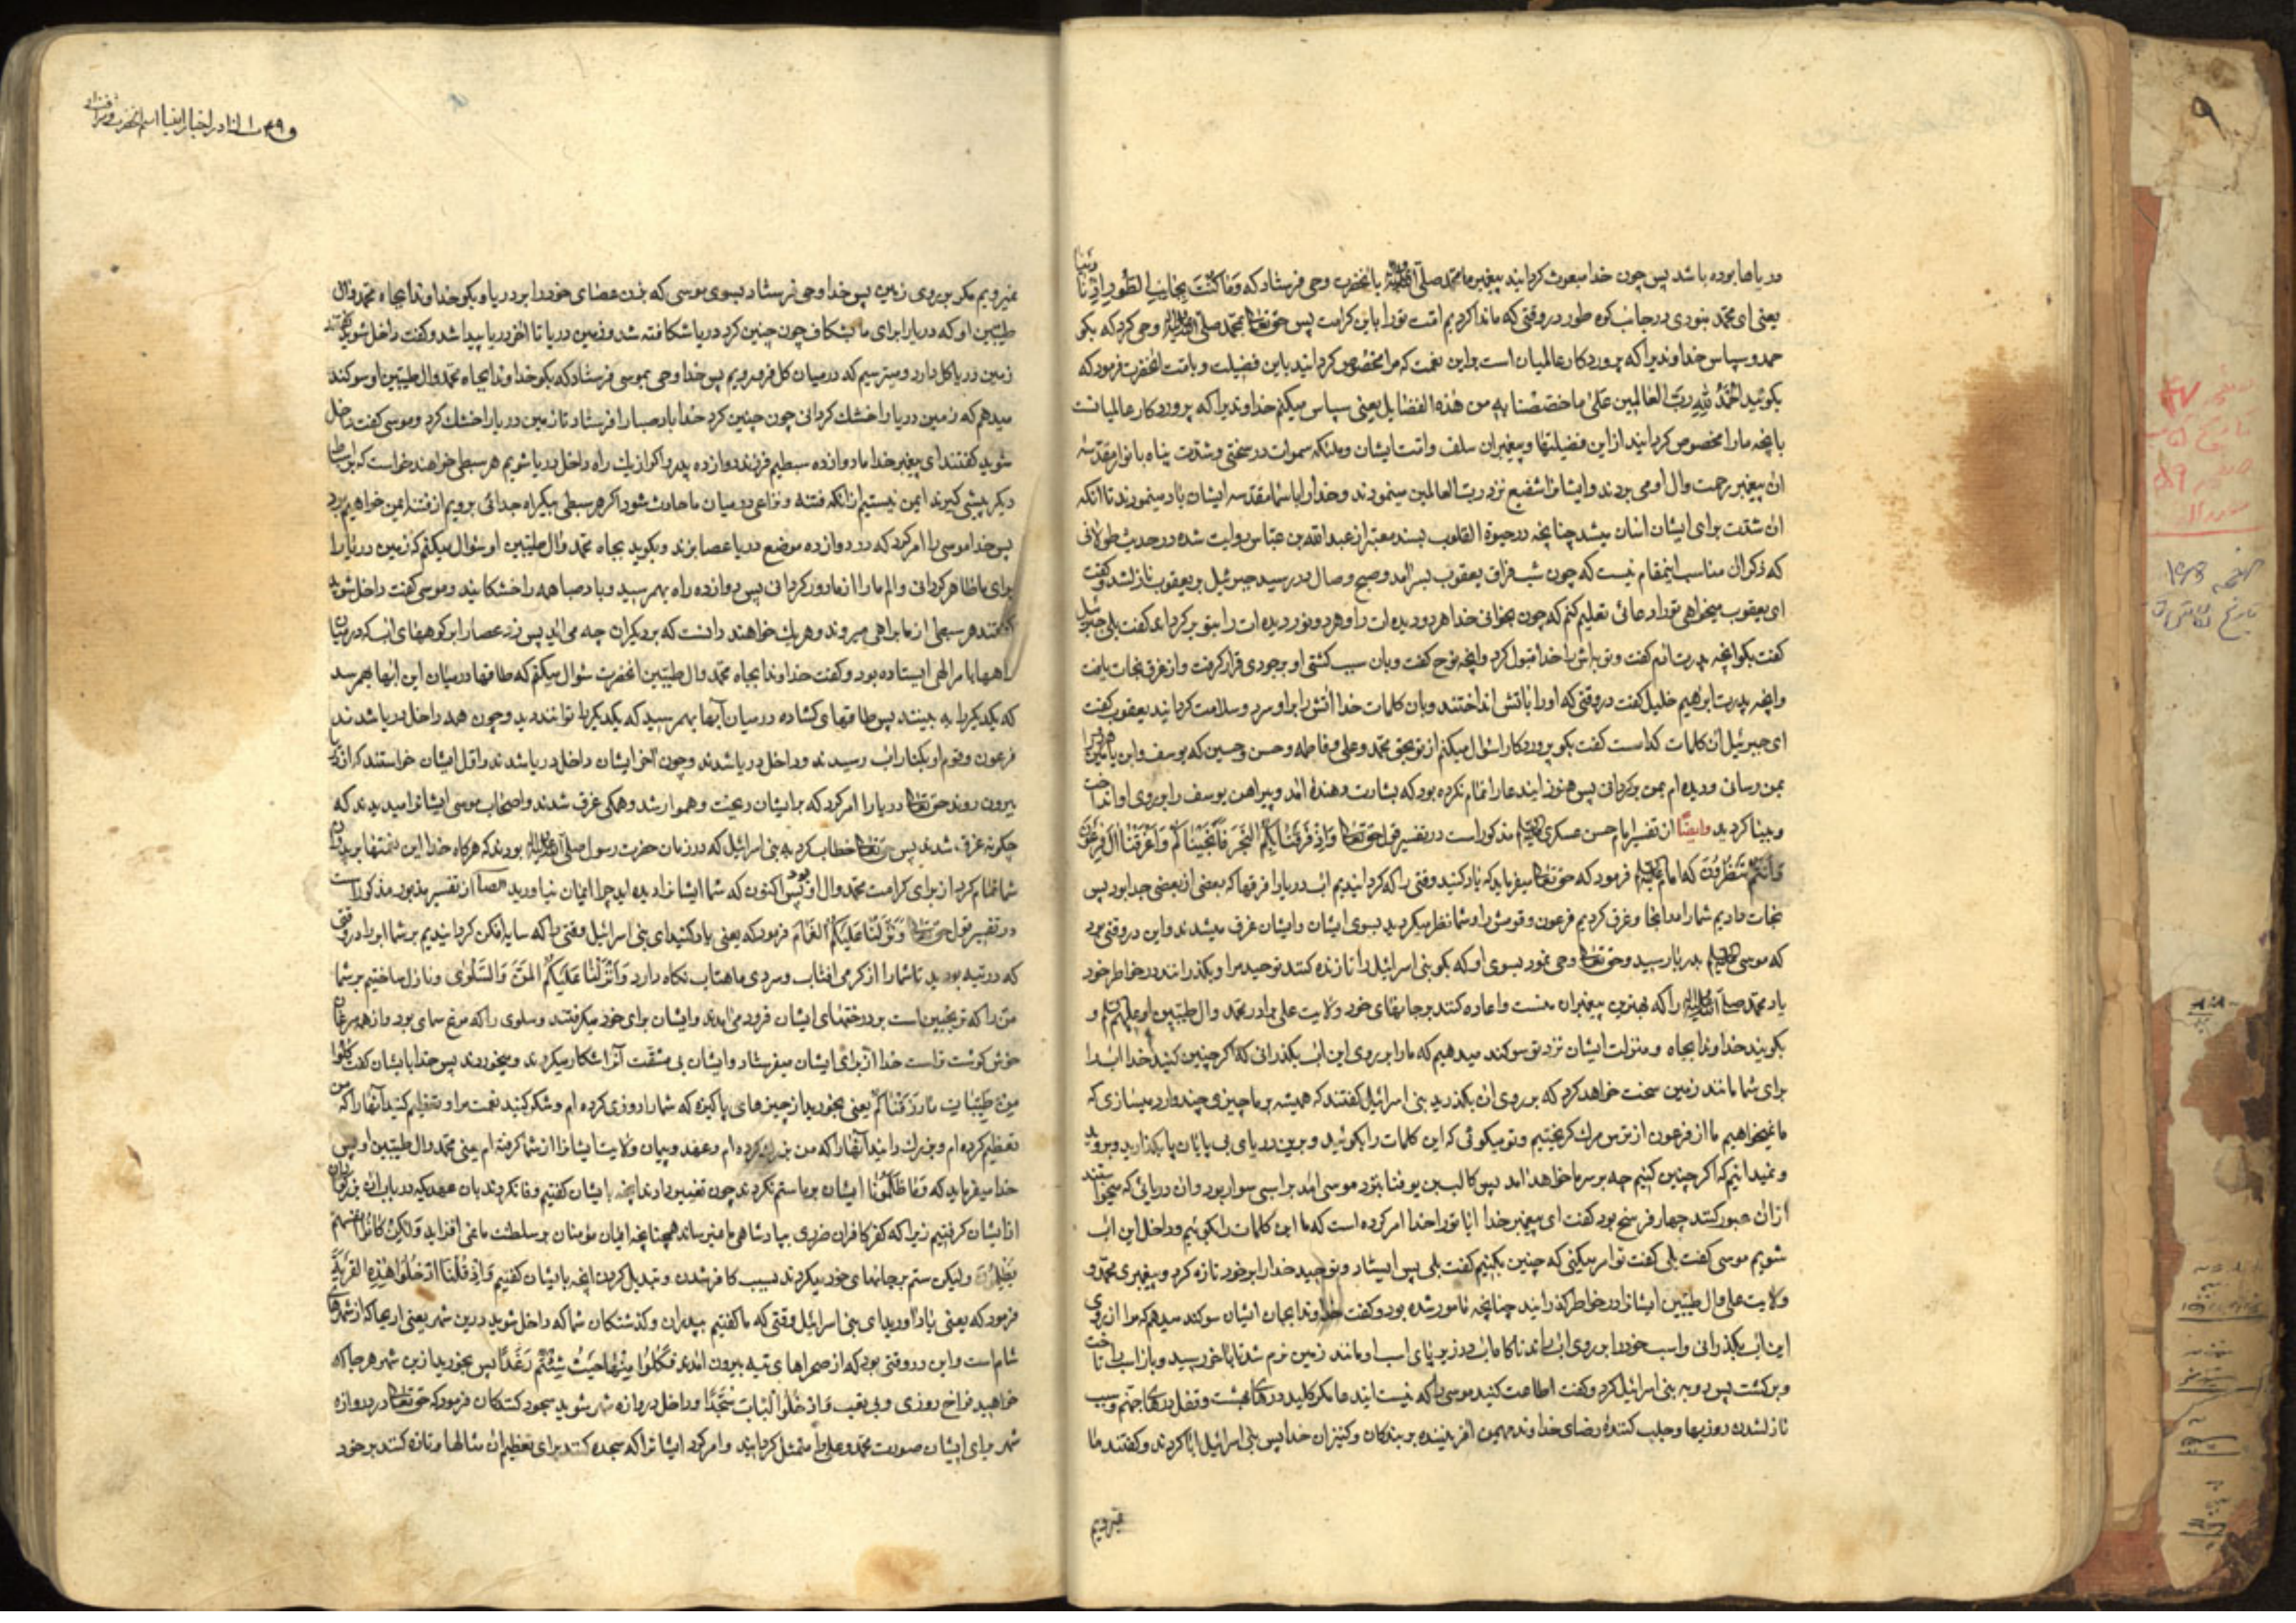 در باصا بوده باشد پس چون خدا مبعوث کردانید پیغمبر ما محمد صلی الله علیه وآله یا نحضرت وحی فرستاد که وَمَا کُنْتَ بِجَانِبِ الطُّورِ اِذْ نَادَیْنَا
یعنی ای محمد نبودی در جانب کوه طور در وقتی که ما ندا کردیم امت تورا باین کرامت پس حق تعالی بمحمد صلی الله علیه وآله وحی کرد که بکو
حمد و سپاس خداوندیرا که پروردکار عالمیان است براین نعمت که مرا مخصوص کردانید باین فضیلت و بامت انحضرت فرمود که
بکوئید اَلْحَمْدُ لِلّهِ رَبِّ الْعَالَمِینَ عَلی ما اختصنا به من هذه الفضایل یعنی سپاس میکنم خداوندیرا که پروردکار عالمیانست
بانچه مارا مخصوص کردانید از این فضیلتها و پیغمبران سلف و امت ایشان و ملئکه سموات در سختی و شدت پناه بانوار مقدسه
ان پیغمبر رحمت وال او می بردند و ایشانرا شفیع نزد رب العالمین مینمودند و خدا را باسماء مقدسه ایشان یاد مینمودند تا انکه
ان شدت برای ایشان اسان میشد چنانچه در حیوة القلوب بسند معتبر از عبدالله بن عباس روایت شده در حدیث طولانی
که ذکر ان مناسب اینمقام نیست که چون شب فراق یعقوب بسر امد و صبح وصال در رسید جبرئیل بر یعقوب نازلشد و کفت
ای یعقوب میخواهی تورا دعائی تعلیم کنم که چون بخوانی خدا هر دو دیده ات را و هر دو نور دیده ات را بتو بر کرداند کفت بلی جبرئیل
کفت بکو انچه پدرت ادم کفت و توبه اش را خدا قبول کرد و انچه نوح کفت و بان سبب کشتی او بر جودی قرار کرفت و از غرق نجات یافت
و انچه پدرت ابراهیم خلیل کفت در وقتی که او را باتش انداختند و بان کلمات خدا اتش را بر او سرد و سلامت کردانید یعقوب کفت
ای جبرئیل ان کلمات کدامست کفت بکو پروردکارا سئوال میکنم از تو بحق محمد و علی و فاطمه و حسن و حسین که یوسف و ابن یامین را
بمن رسانی و دیده ام بمن برکردانی پس هنوز ایندعا را تمام نکرده بود که بشارت دهنده امد و پیراهن یوسف را بر روی او انداخت
و بینا کردید وایضاً از تفسیر امام حسن عسکری مذکور است در تفسیر قول حق تعالی وَاِذْ فَرَقْنَا بِکُمُ الْبَحْرَ فَاَنْجَیْنَاکُمْ وَاَغْرَقْنَا الَ فِرْعَوْنَ
وَاَنْتُمْ تَنْظُرُونَ که امام فرمود که حق تعالی میفرماید که یاد کنید وقتی را که کردانیدیم اب دریا را فرقها که بعضی از بعضی جدا بود پس
نجات دادیم شما را در انجا و غرق کردیم فرعون و قومش را و شما نظر میکردید بسوی ایشان و ایشان غرق میشدند و این در وقتی بود
که موسی بدریا رسید و حق تعالی وحی نمود بسوی او که بکو بنی اسرائیل را تا تازه کنند توحید مرا و بکذرانند در خاطر خود
یاد محمد صلی الله علیه وآله را که بهترین پیغمبران منست و اعاده کنند بر جانهای خود ولایت علی برادر محمد وال طیبین او علیهم السلام و
بکویند خداوندا بجاه و منزلت ایشان نزد تو سوکند میدهیم که مارا بر روی این اب بکذرانی که اکر چنین کنید خدا اب را
برای شما مانند زمین سخت خواهد کرد که بر روی ان بکذرید بنی اسرائیل کفتند که همیشه بر ما چیزی چند وارد میسازی که
ما نمیخواهیم ما از فرعون از ترس مرك کریختیم و تو میکوئی که این کلمات را بکوئید و برین دریای بی پایان پا بکذارید و بروید
و نمیدانیم که اکر چنین کنیم چه بر سر ما خواهد امد پس کالب بن یوفنا بنزد موسی امد بر اسبی سوار بود و ان دریائی که میخواستند
از ان عبور کنند چهار فرسخ بود کفت ای پیغمبر خدا ایا تو را خدا امر کرده است که ما این کلمات را بکوئیم و داخل این اب
شویم موسی کفت بلی کفت تو امر میکنی که چنین بکنیم کفت بلی پس ایستاد و توحید خدا را بر خود تازه کرد و پیغمبری محمد و
ولایت علی وال طیبین ایشانرا در خاطر کذرانید چنانچه مامور شده بود و کفت خداوندا بجاه ایشان سوکند میدهم که مرا از روی
این اب بکذرانی و اسب خود را بر روی اب راند ناکاه اب در زیر پای اسب او مانند زمین نرم شد تا باخر رسید و باز اسب را تاخت
و برکشت پس رو به بنی اسرائیل کرد و کفت اطاعت کنید موسی را که نیست ایندعا مکر کلید درهای بهشت و قفل درهای جهنم و سبب
نازلشدن روزیها و جلب کنندهٔ رضای خداوند مهیمن افریننده بر بندکان و کنیزان خدا پس بنی اسرائیل ابا کردند و کفتند ما
نمیرویم
نمیرویم مکر بر روی زمین پس خدا وحی فرستاد بسوی موسی که بزن عصای خود را بر دریا و بکو خداوندا بجاه محمد وال
طیبین او که دریا را برای ما بشکاف چون چنین کرد دریا شکافته شد و زمین دریا تا اخر دریا پیدا شد و کفت داخل شوید کفتند
زمین دریا کل دارد و میترسیم که در میان کل فرو رویم پس خدا وحی بموسی فرستاد که بکو خداوندا بجاه محمد وال طیبین او سوکند
میدهم که زمین دریا را خشك کردانی چون چنین کرد خدا باد صبا را فرستاد تا زمین دریا را خشك کرد و موسی کفت داخل
شوید کفتند ای پیغمبر خدا ما دوازده سبطیم فرزند دوازده پدر و اکر از یك راه داخل دریا شویم هر سبطی خواهند خواست که بر سبط
دیکر پیشی کیرند ایمن نیستیم از انکه فتنه و نزاعی در میان ما حادث شود اکر هر سبطی بیکراه جدائی برویم از فتنه ایمن خواهیم بود
پس خدا موسی را امر کرد که در دوازده موضع دریا عصا بزند و بکوید بجاه محمد وال طیبین او سئوال میکنم که زمین دریا را
برای ما ظاهر کردانی و الم ما را از ما دور کردانی پس دوازده راه بهم رسید و باد صبا همه را خشکانید و موسی کفت داخل شوید
کفتند هر سبطی از ما براهی میروند و هر یك نخواهند دانست که بر دیکران چه می اید پس زد عصا را بر کوههای اب که در میان
راهها بامر الهی ایستاده بود و کفت خداوندا بجاه محمد وال طیبین انحضرت سئوال میکنم که طاقها در میان این ابها بهم رسد
که یکدیکر را به بینند پس طاقهای کشاده در میان آبها بهم رسید که یکدیکر را توانند دید و چون همه داخل دریا شدند
فرعون و قوم او بکنار اب رسیدند و داخل دریا شدند و چون اخر ایشان داخل دریا شدند و اول ایشان خواستند که از دریا
بیرون روند حق تعالی دریا را امر کرد که بر ایشان ریخت و هموار شد و همکی غرق شدند و اصحاب موسی ایشانرا میدیدند که
چکونه غرق شدند پس حق تعالی خطاب کرد به بنی اسرائیل که در زمان حضرت رسول صلی الله علیه وآله بودند که هرکاه خدا این نعمتها بر پدران
شما تمام کرد از برای کرامت محمد وال او بود پس اکنون که شما ایشانرا دیده اید چرا ایمان نیاورید ایضاً از تفسیر مذبور مذکور است
در تفسیر قول حق تعالی وَظَلَّلْنَا عَلَیْکُمُ الْغَمَامَ فرمود که یعنی یاد کنید ای بنی اسرائیل وقتی را که سایه افکن کردانیدیم بر شما ابر را در وقتی
که در تیه بودید تا شما را از کرمی افتاب و سردی ماهتاب نکاه دارد وَاَنْزَلْنَا عَلَیْکُمُ الْمَنَّ وَالسَّلْوی و نازل ساختیم بر شما
من را که ترنجبین است بر درختهای ایشان فرود می امد و ایشان برای خود میکرفتند و سلوی را که مرغ سمای بود و از همه مرغان
خوش کوشت تر است خدا از برای ایشان میفرستاد و ایشان بی مشقت آنرا شکار میکردند و میخوردند پس خدا بایشان کفت کُلُوا
مِنْ طَیِّبَاتِ مَا رَزَقْنَاکُمْ یعنی بخورید از چیزهای پاکیزه که شما را روزی کرده ام و شکر کنید نعمت مرا و تعظیم کنید آنها را که من
تعظیم کرده ام و بزرك دانید آنها را که من بزرك کرده ام و عهد و پیمان ولایت ایشانرا از شما کرفته ام یعنی محمد وال طیبین او پس
خدا میفرماید که وَمَا ظَلَمُونَا ایشان بر ما ستم نکردند چون تغییر دادند انچه بایشان کفتیم و وفا نکردند بان عهدیکه در باب ان بزرکواران
از ایشان کرفتیم زیرا که کفر کافران ضرری بپادشاهی ما نمیرساند همچنانچه ایمان مؤمنان بر سلطنت ما نمی افزاید وَلکِنْ کَانُوا اَنْفُسَهُمْ
یَظْلِمُونَ ولیکن ستم بر جانهای خود میکردند بسبب کافر شدن و تبدیل کردن انچه بایشان کفتیم وَاِذْ قُلْنَا ادْخُلُوا هذِهِ الْقَرْیَةَ
فرمود که یعنی یاد اورید ای بنی اسرائیل وقتی که ما کفتیم بپدران و کذشتکان شما که داخل شوید درین شهر یعنی اریحا که از شهرهای
شام است و این در وقتی بود که از صحراهای تیه بیرون امدند فَکُلُوا مِنْهَا حَیْثُ شِئْتُمْ رَغَدًا پس بخورید ازین شهر هر جا که
خواهید فراخ روزی و بی تعب وَادْخُلُوا الْبَابَ سُجَّدًا و داخل دروازه شهر شوید سجود کنندکان فرمود که حق تعالی در دروازه
شهر برای ایشان صورت محمد و علی را متمثل کردانید و امر کرد ایشانرا که سجده کنند برای تعظیم ان مثالها و تازه کنند بر خود